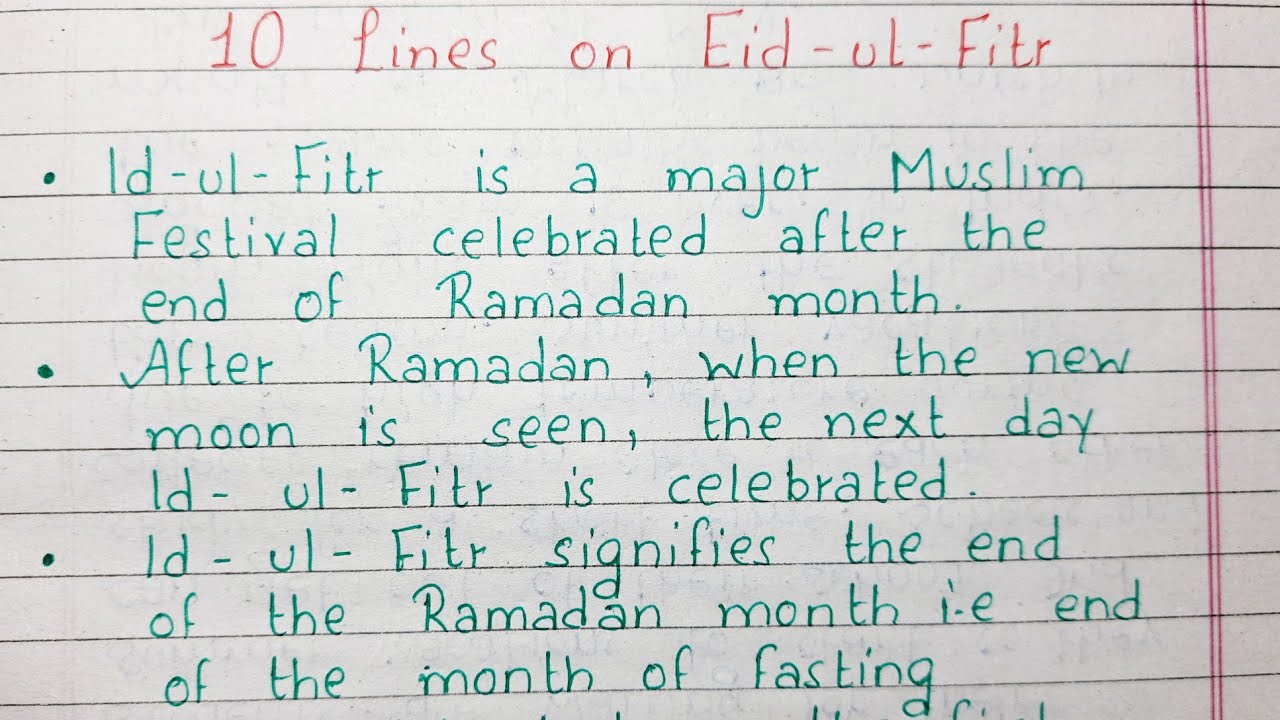 10 Lines on Eid-ul-Fitr
• Id-ul-Fitr is a major Muslim
Festival celebrated after the
end of Ramadan month.
• After Ramadan, when the new
moon is seen, the next day
Id- ul- Fitr is celebrated.
• Id- ul- Fitr signifies the end
of the Ramadan month i.e end
of the month of fasting